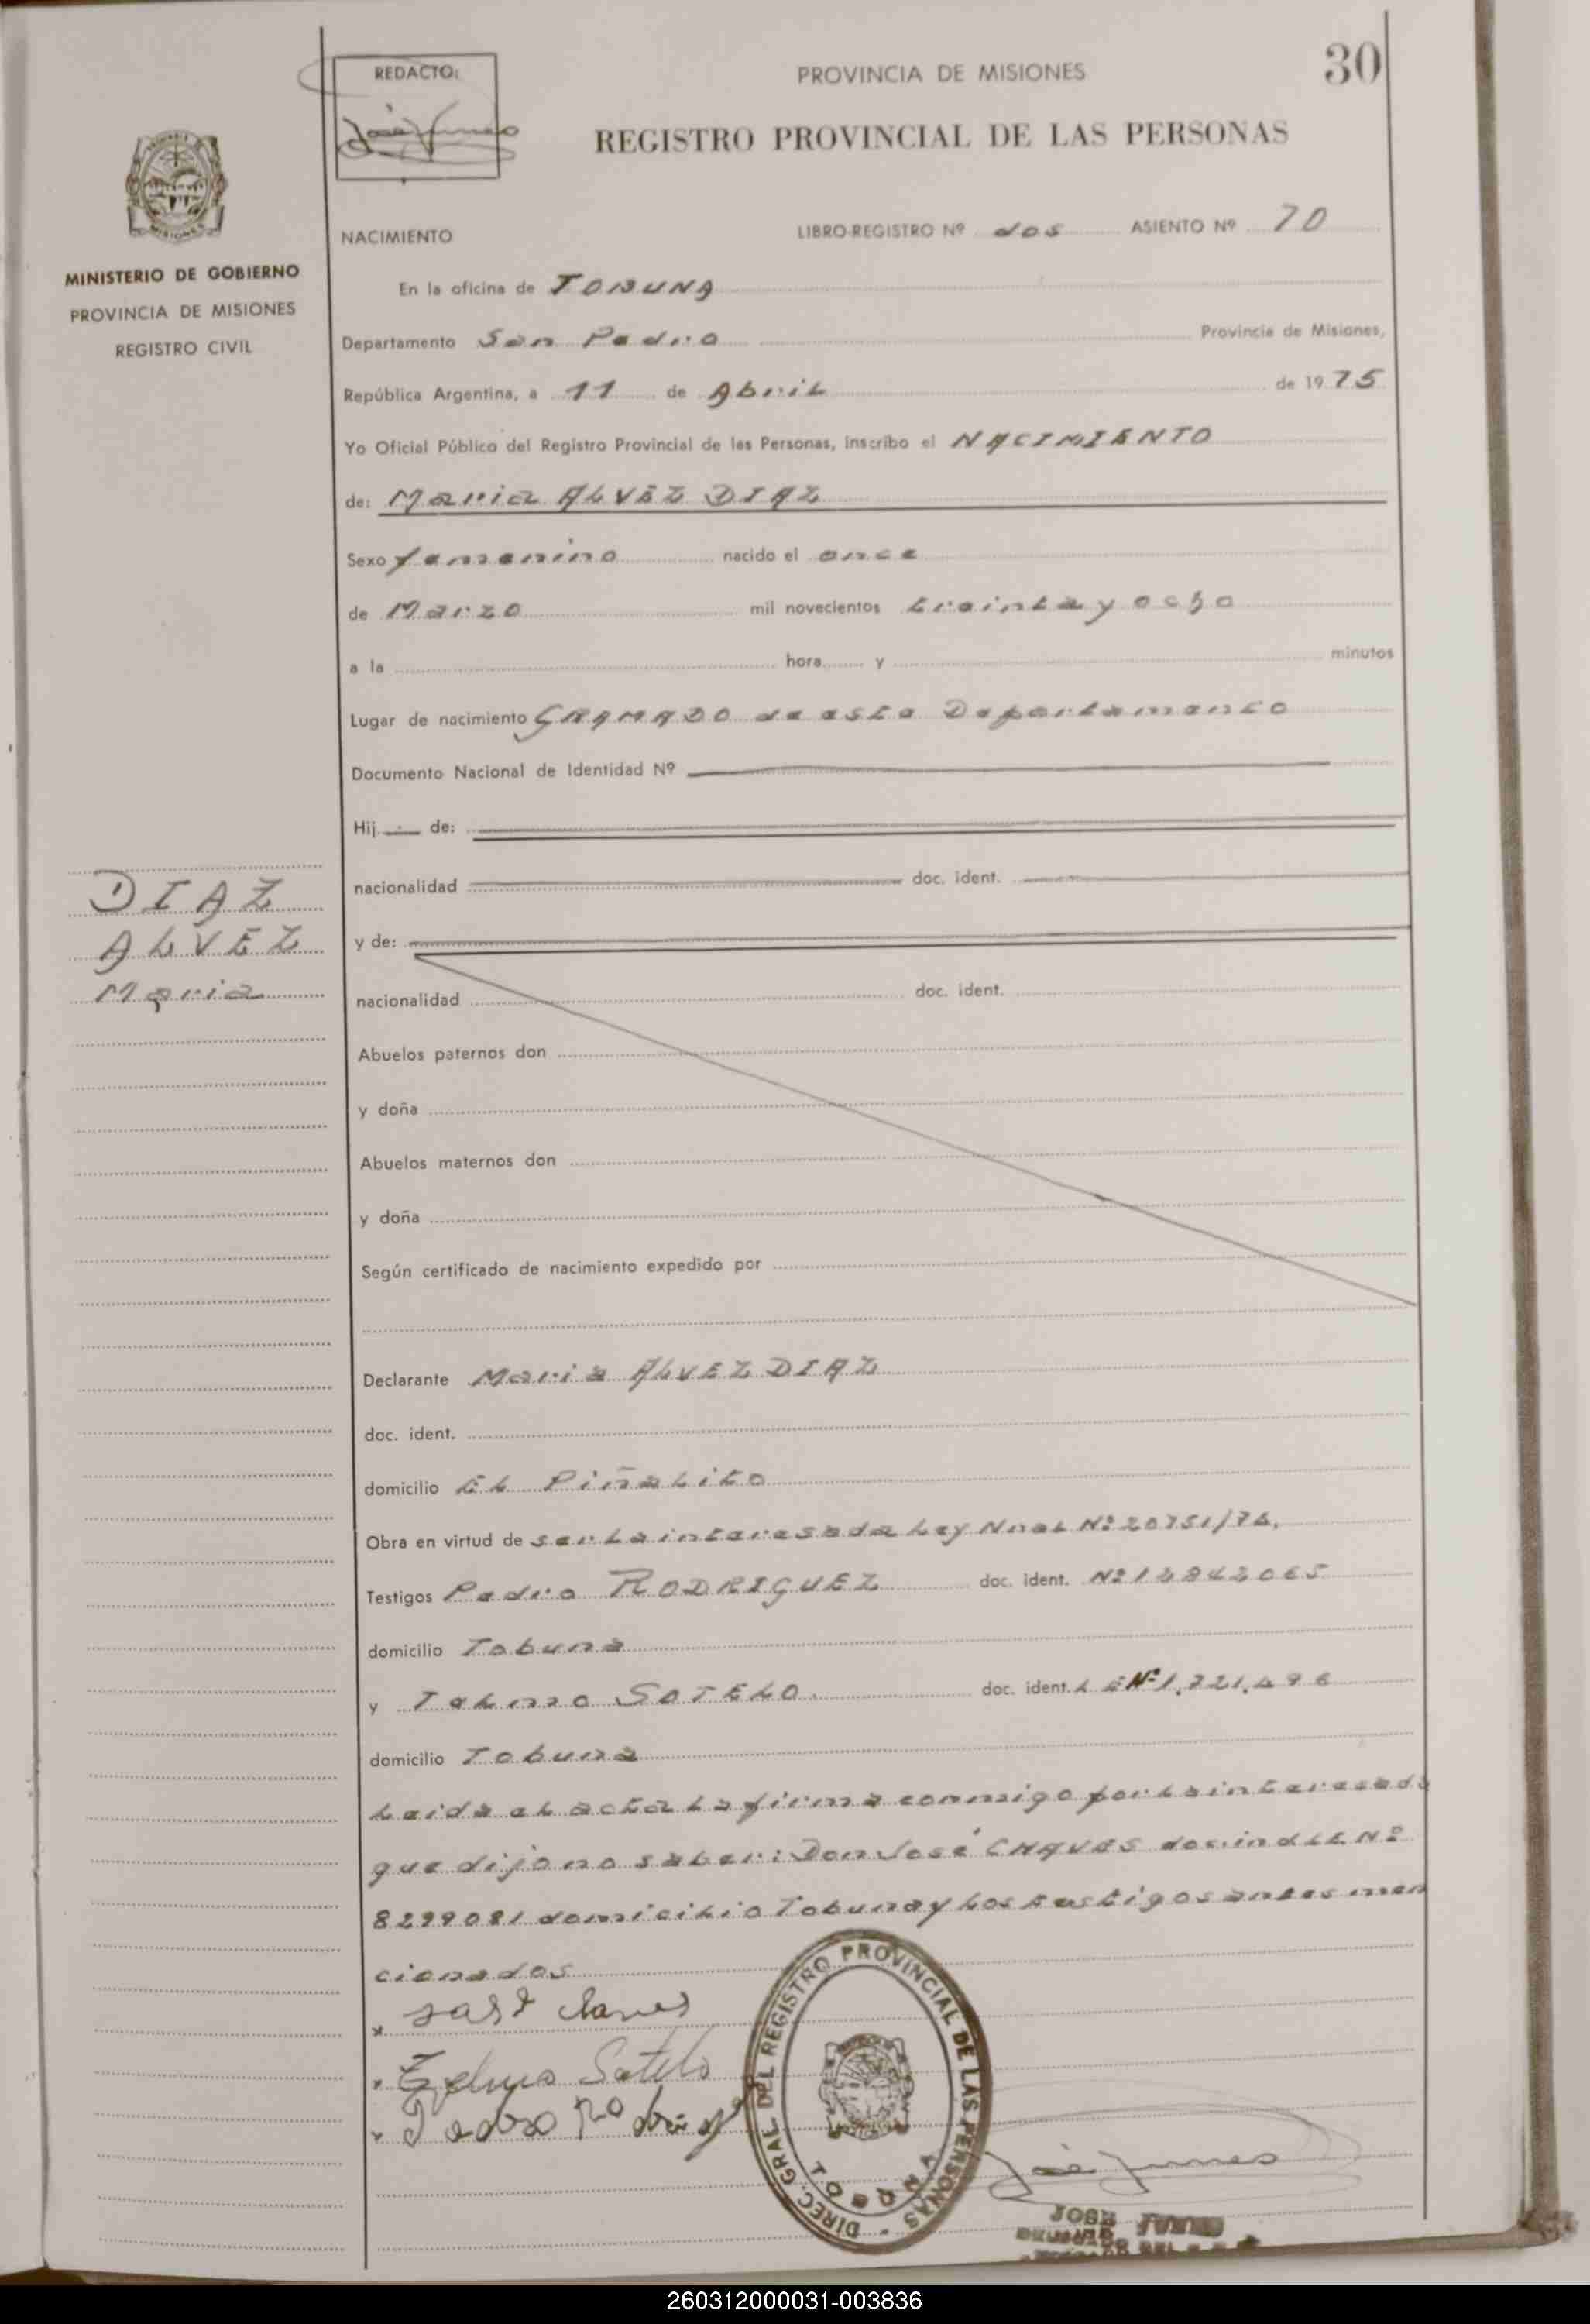 30
REDACTO:
PROVINCIA DE MISIONES
REGISTRO PROVINCIAL DE LAS PERSONAS
MISIONES
MINISTERIO DE GOBIERNO
PROVINCIA DE MISIONES
REGISTRO CIVIL
NACIMIENTO LIBRO-REGISTRO Nº dos ASIENTO Nº 70
En la oficina de TOBUNA
Departamento San Pedro Provincia de Misiones,
República Argentina, a 11 de Abril de 1975
Yo Oficial Público del Registro Provincial de las Personas, inscribo el NACIMIENTO
de: Maria ALVEZ DIAZ
Sexo femenino nacido el once
de Marzo mil novecientos treinta y ocho
a la hora y minutos
Lugar de nacimiento GRAMADO de este Departamento
Documento Nacional de Identidad Nº
Hij de:
nacionalidad doc. ident.
y de:
nacionalidad doc. ident.
DIAZ
ALVEZ
Maria
Abuelos paternos don
y doña
Abuelos maternos don
y doña
Según certificado de nacimiento expedido por
Declarante Maria ALVEZ DIAZ
doc. ident.
domicilio EL Piñalito
Obra en virtud de ser la interesada Ley Nnal Nº 20751/74.
Testigos Pedro RODRIGUEZ doc. ident. Nº
domicilio Tobuna
y Telmo SOTELO. doc. ident. L E Nº
domicilio Tobuna
Leida el acta la firma conmigo por la interesada
que dijo no saber: Don José CHAVES doc. ind L E Nº
8299081 domicilio Tobuna y los testigos antes men
cionados
José Chaves
Telmo Sotelo
Pedro Rodriguez
DIREC. GRAL DEL REGISTRO PROVINCIAL DE LAS PERSONAS
TOBUNA
JOSE
260312000031-003836